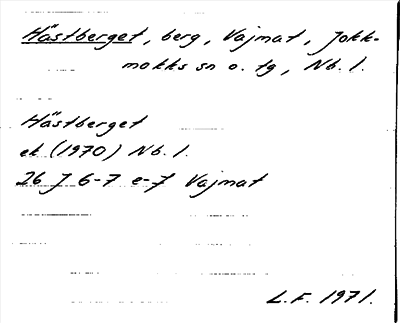 Hästberget, berg, Vajmat, Jokk-
mokks sn o. tg, Nb. l.
Hästberget
ek (1970) Nb. l.
26 J 6-7 e-f Vajmat
L.F. 1971.